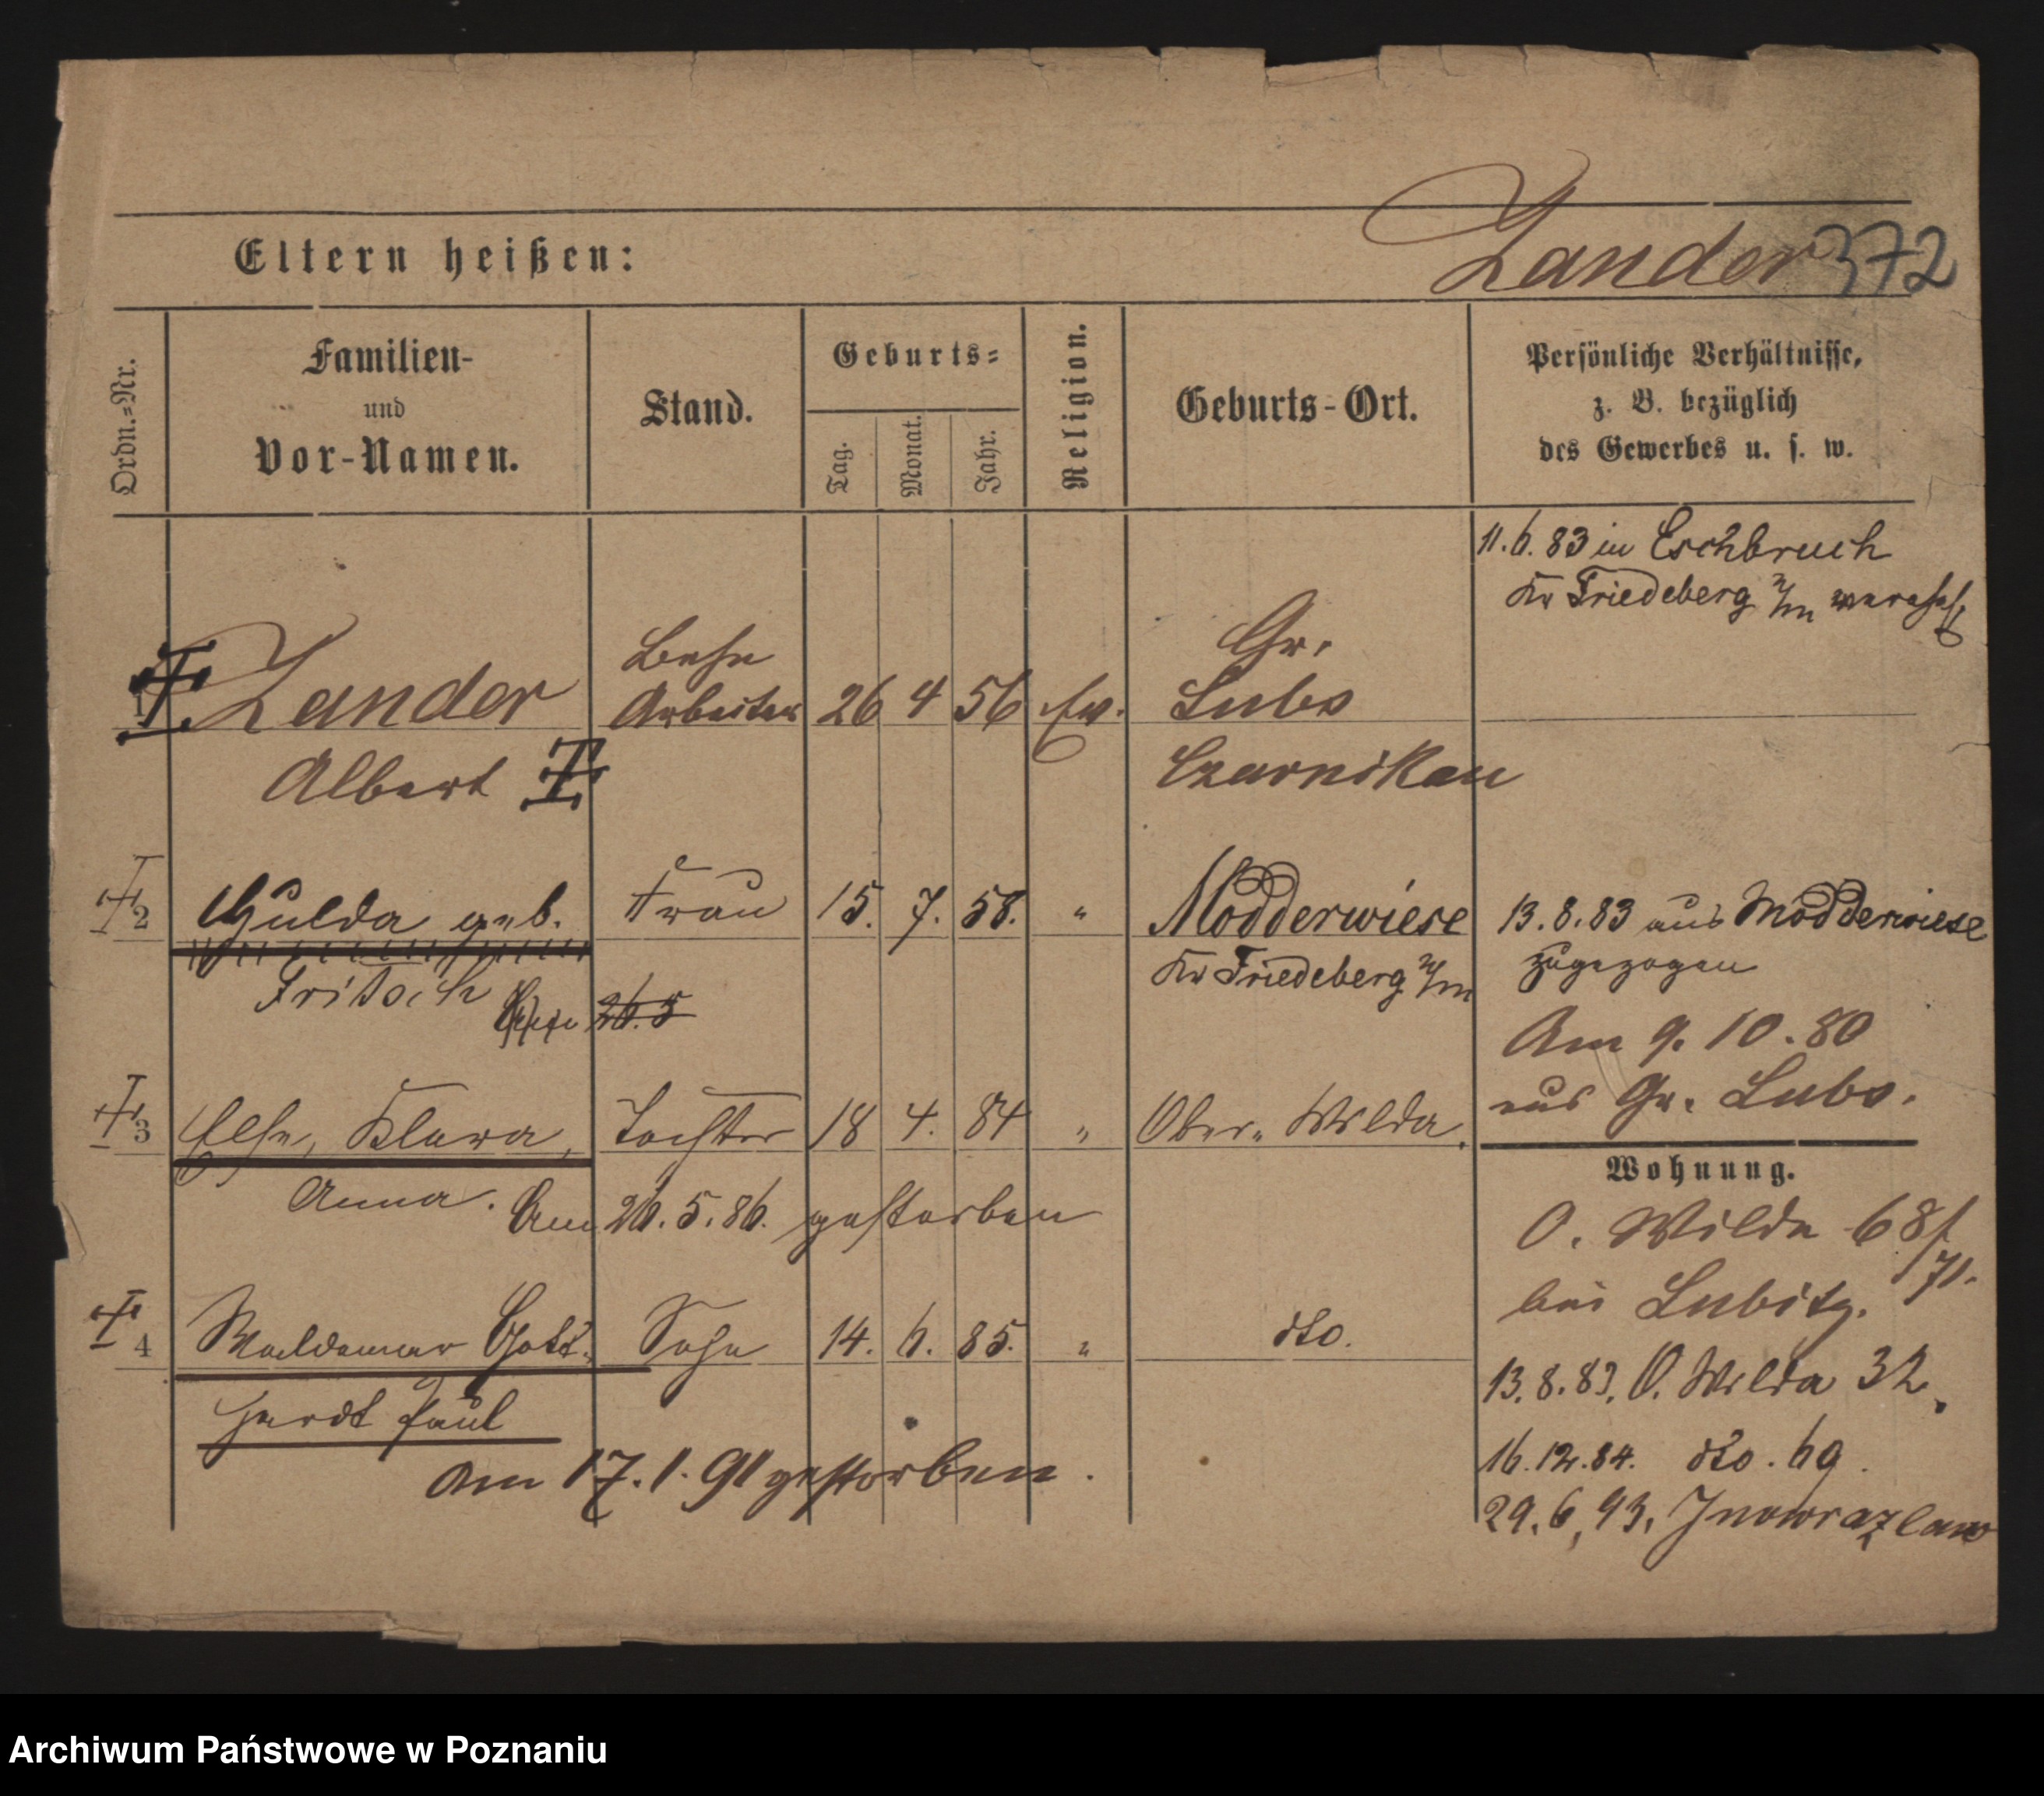 Zander 372
Eltern heißen:
Ordn.=Nr.
Familien-
und
Vor-Namen.
Stand.
Geburts=
Tag.
Monat.
Jahr.
Religion.
Geburts-Ort.
Persönliche Verhältnisse,
z. B. bezüglich
des Gewerbes u. s. w.
11.6.83 in Eschbruch
Kr Friedeberg N/m
1 Zander Arbeiter 26 4 56 ev. Gr. Lubs
Albert Czarnikau
2 Hulda geb. Frau 15. 7. 58. " Modderwiese
Fritsch Kr Friedeberg N/m
26.5
13.8.83 aus Modderwiese
zugezogen
Am 9.10.80
aus Gr. Lubs.
3 Else, Klara, Tochter 18 4. 84 " Ober-Wilda.
Anna. Am 26.5.86. gestorben
4 Waldemar Gott- Sohn 14. 6. 85. " dto.
hardt Paul
Am 17.1.91 gestorben.
Wohnung.
O. Wilda 68/71.
bei Lubitz.
13.8.83. O. Wilda 32.
16.12.84. dto. 69.
29.6.93. Inowrazlaw
Archiwum Państwowe w Poznaniu